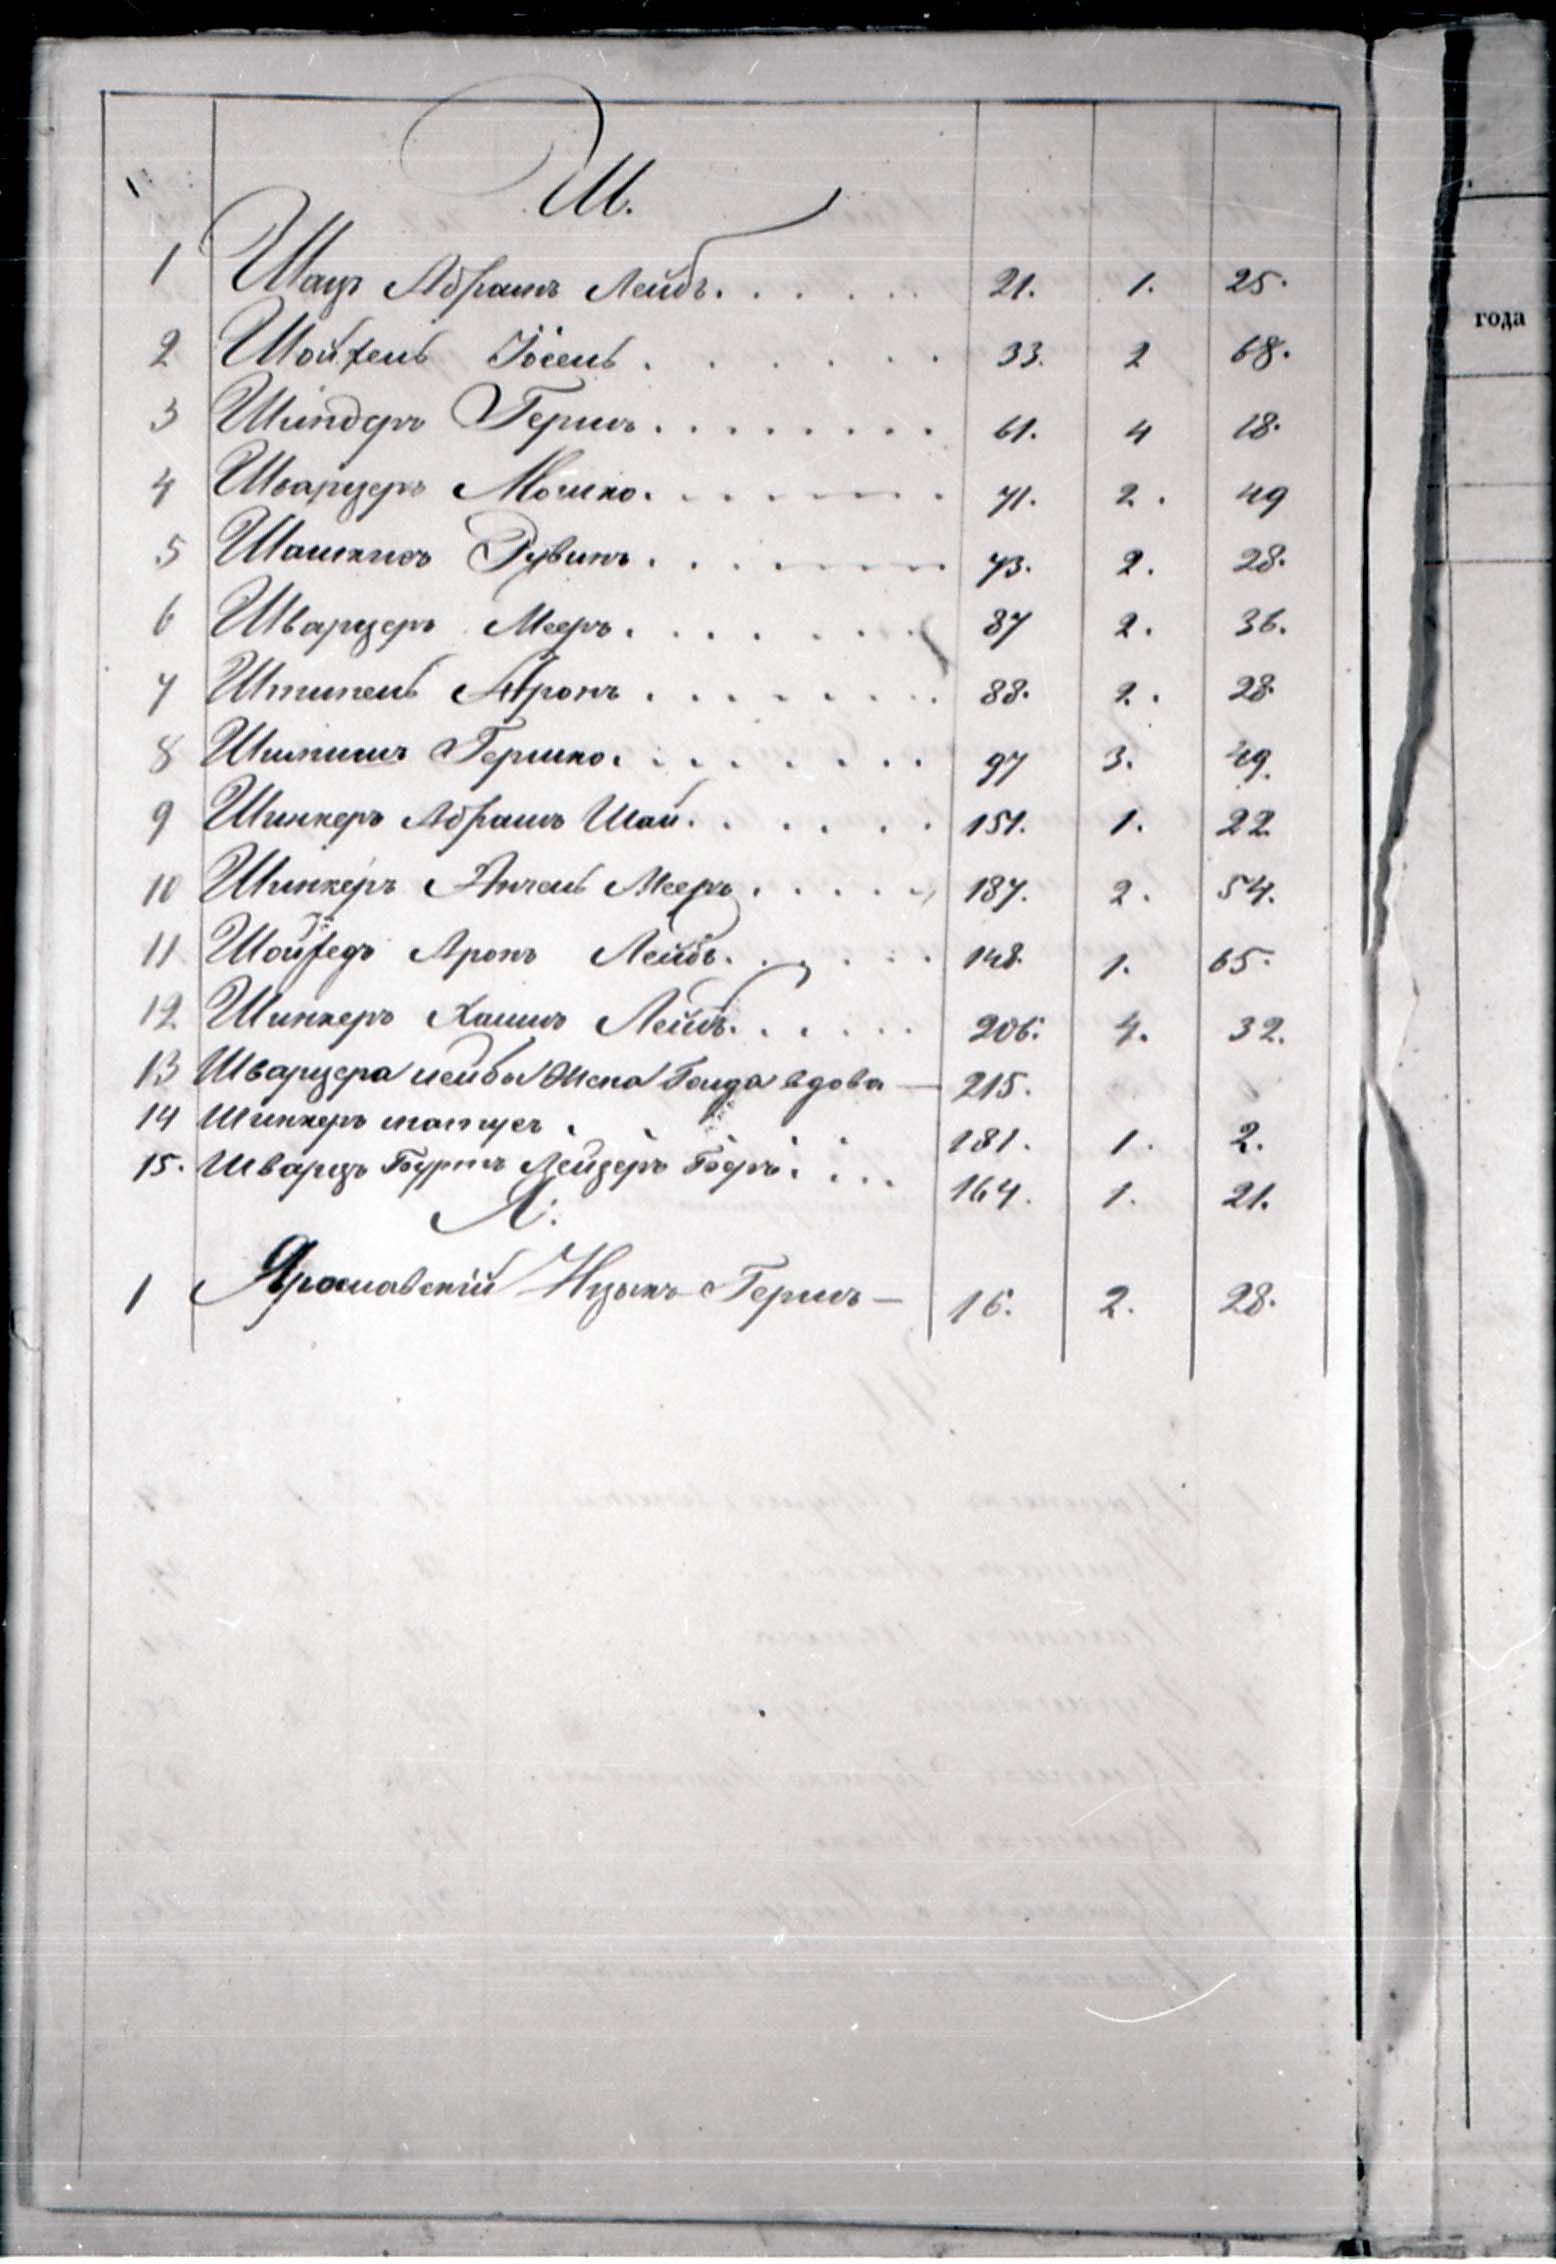 Ш.
1 Шацъ Абрамъ Лейбъ. 21. 1. 25.
2 Шойхель Іосель 33. 2 68.
3 Шиндеръ Гершъ 61. 4 18.
4 Шварцеръ Мошко. 71. 2. 49
5 Рувинъ 73. 2. 28.
6 Шварцеръ Мееръ. 87 2. 36.
7 Штипель Аронъ 88. 2. 28.
8 Гершко. 97 3. 49.
9 Шинкеръ Абрамъ Шай. 151. 1. 22
10 Шинкеръ Анчель Мееръ 187. 2. 54.
11 Аронъ Лейбъ. 148. 1. 65.
12 Шинкеръ Хаимъ Лейбъ. 206. 4. 32.
13 Шварцера Лейбы Жена вдова — 215.
14 Шинкеръ 181. 1. 2.
15. Шварцъ Лейзеръ 164. 1. 21.
Я.
1 Ярославскій Ицыкъ Гершъ — 16. 2. 28.
года